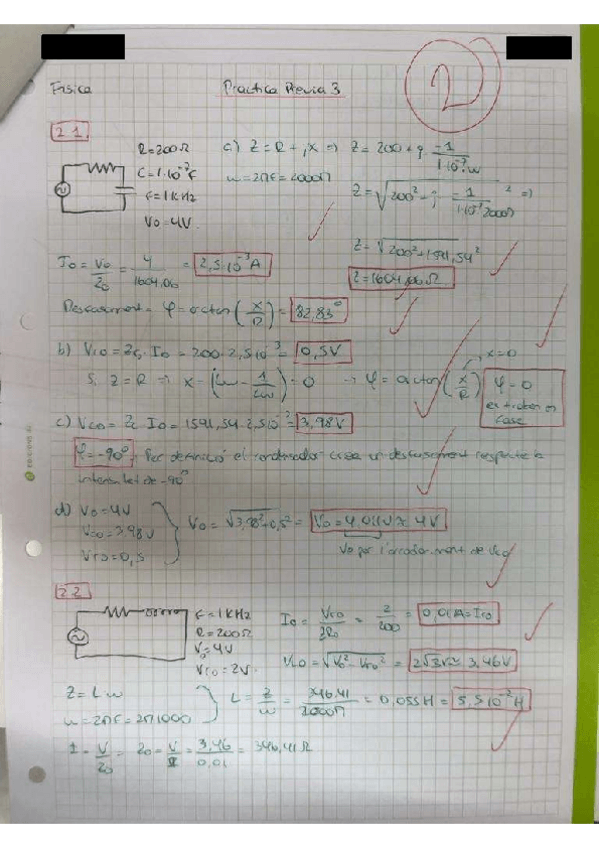 Física Practica Previa 3
2
2.1.
R=200Ω
C=1·10⁻⁷F
f=1KHz
V0=4V.
a) Z=R+jX => Z=200+j·-1/1·10⁻⁷·w
w=2πf=2000π
Z=√200²-j(-1/1·10⁻⁷2000π)² =>
Z=√200²+1591,54²
Z=1604,06Ω
I0=V0/Z0=4/1604,06=2,5·10⁻³A
φ=arctan(X/R)=82,83°
b) VR0=ZR·I0=200·2,5·10⁻³=0,5V
Si Z=R => X=(Lw-1/Cw)=0 -> φ=arctan(X/R) x=0
φ=0
es troben en
fase
c) VC0=ZC·I0=1591,54·2,5·10⁻³=3,98V
φ=-90° Per definició el condensador crea un desfasament respecte la
intensitat de -90°
d) V0=4V
VC0=3,98V
VR0=0,5
V0=√3,98²+0,5²=V0=4,011V≈4V
2.2
f=1KHz
R=200Ω
V0=4V
VR0=2V.
I0=VR0/ZR0=2/200=0,01A=IR0
VL0=√V0²-VR0²=2√3V≈3,46V
Z=Lw
w=2πf=2π1000
L=Z/w=346,41/2000π=0,055H=5,5·10⁻²H
I=V/Z0=Z0=V/I=3,46/0,01=346,41Ω